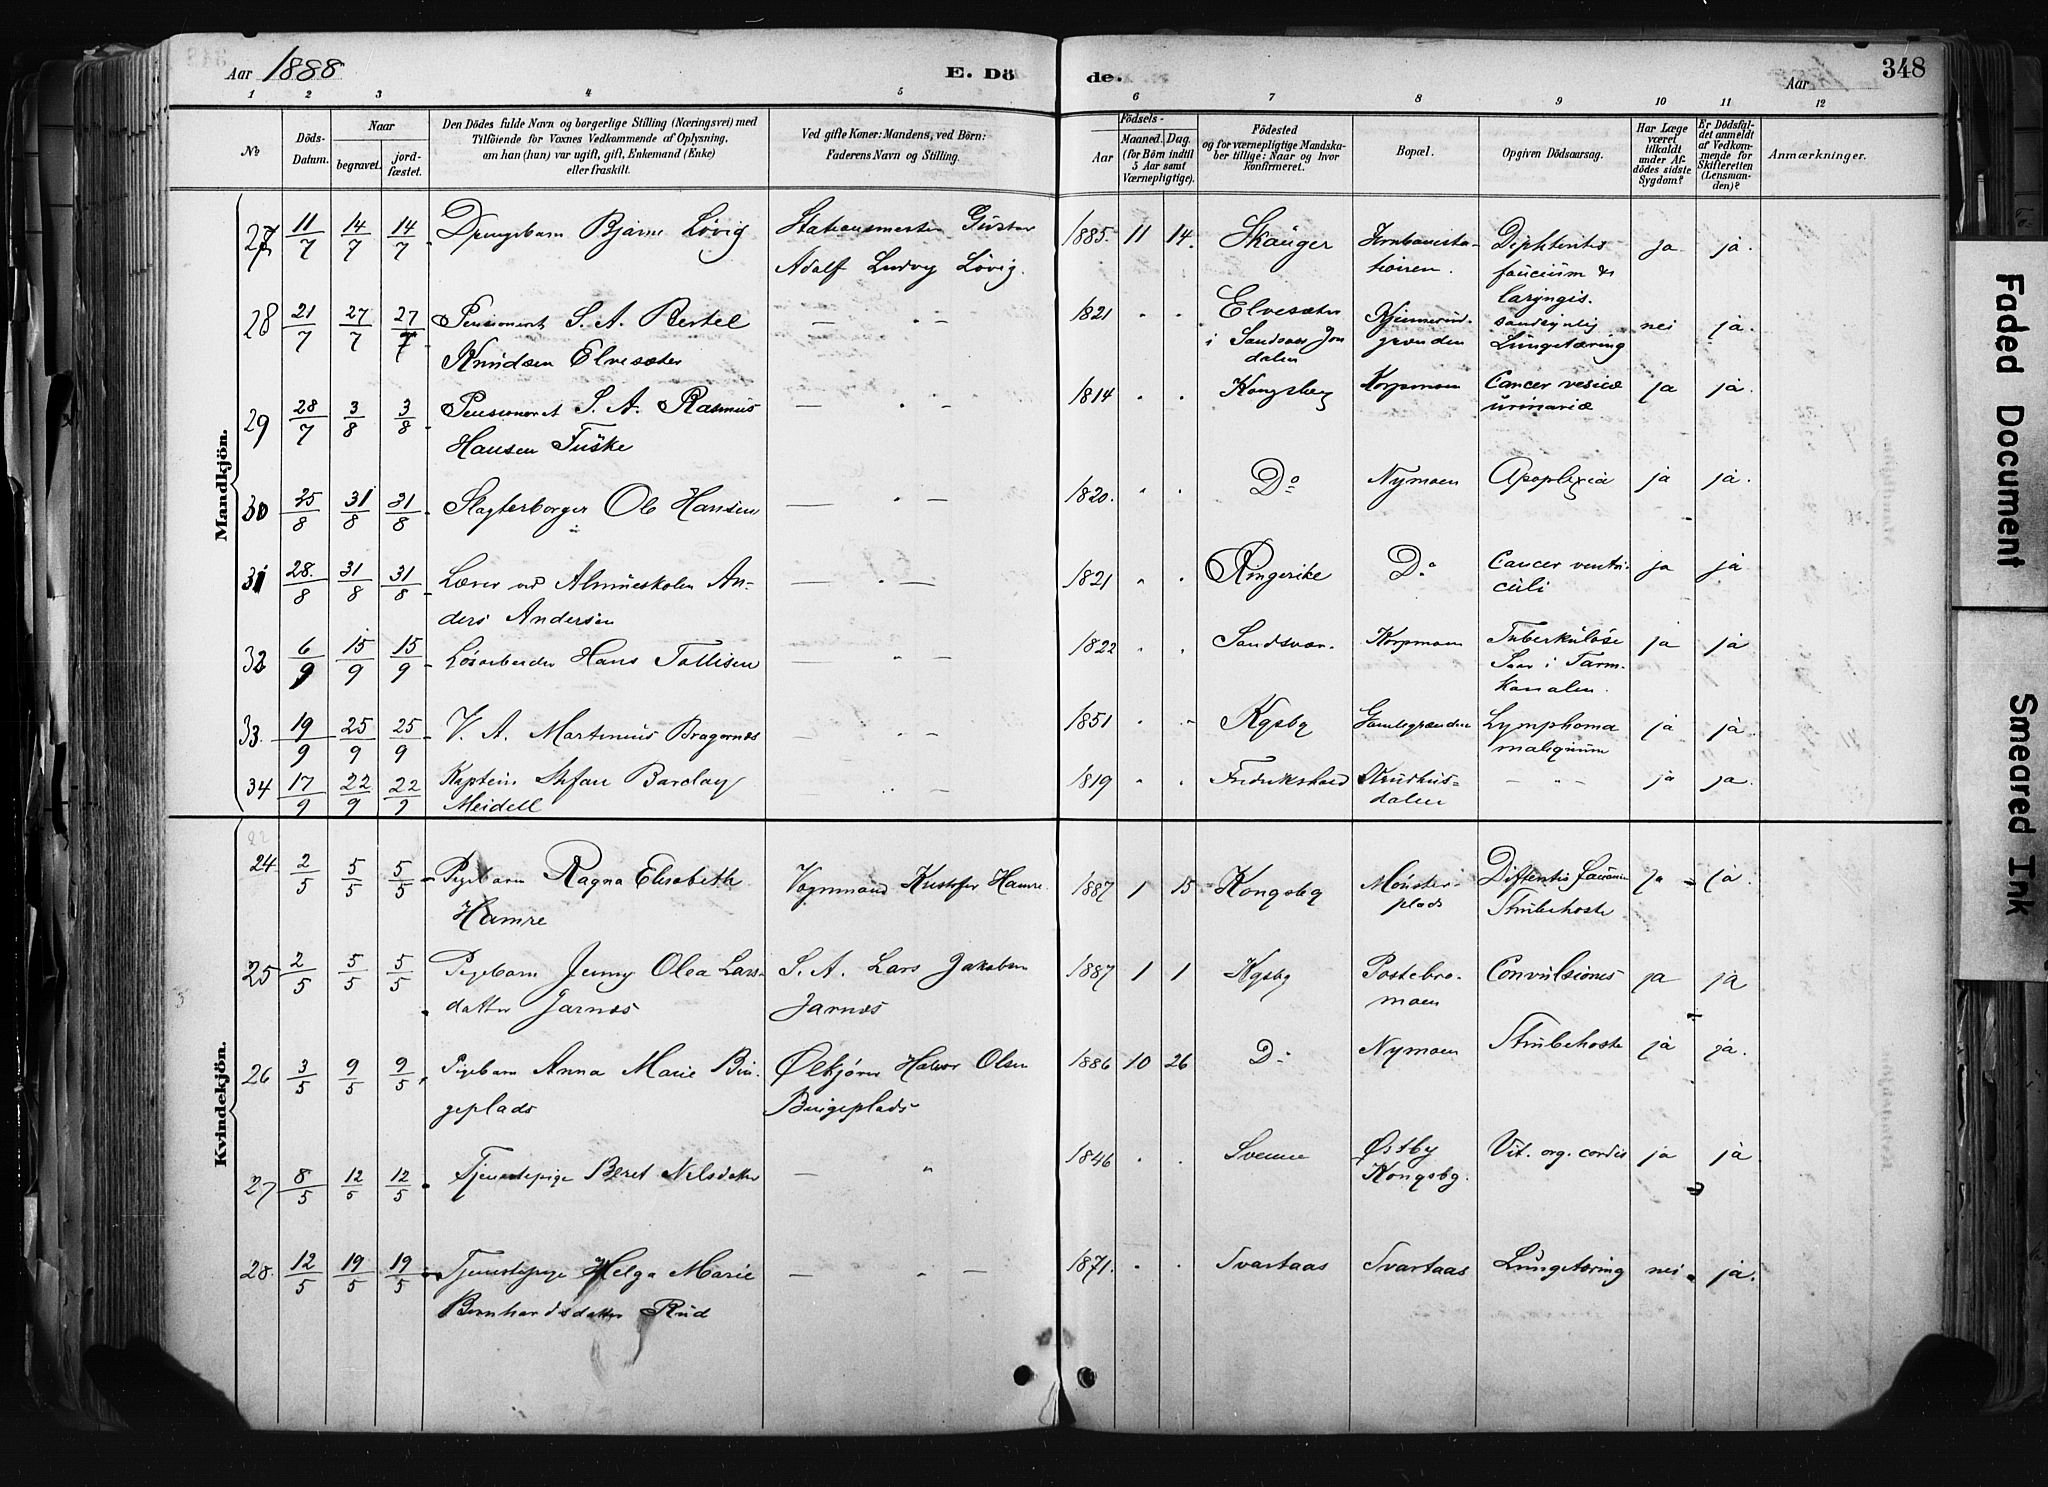 Aar 1888
E. Dö
de.
348
Aar
1 2 3 4 5 6 7 8 9 10 11 12
No.
Döds-
Datum.
Naar
begravet.
jord-
fæstet.
Den Dödes fulde Navn og borgerlige Stilling (Næringsvei) med
Tilföiende for Voxnes Vedkommende af Oplysning,
om han (hun) var ugift, gift, Enkemand (Enke)
eller fraskilt.
Ved gifte Koner: Mandens, ved Börn:
Faderens Navn og Stilling.
Födsels-
Aar
Maaned. Dag.
(for Börn indtil
5 Aar samt
Værnepligtige).
Födested
og for værnepligtige Mandska-
ber tillige: Naar og hvor
konfirmeret.
Bopæl.
Opgiven Dödsaarsag.
Har Læge
været
tilkaldt
under Af-
dödes sidste
Sygdom?
Er Dödsfal-
det anmeldt
af Vedkom-
mende for
Skifteretten
(Lensman-
den)?
Anmærkninger.
Mandkjön.
27 11/7 14/7 14/7 Drengebarn Bjarne Lövig Stationsmester Gustav 1885. 11 14. Skauger Jernbanesta- Diphteritis ja ja.
Adolf Ludvig Lövig. tionen. faucium &
laryngis.
28 21/7 27/7 27/7 Pensioneret S. A. Bertel — " — 1821 " " Elvesæter sandsynlig nei ja.
Knudsen Elvesæter i Sandsvær Jon grunden Lungetæring
dalen
29 28/7 3/8 3/8 Pensioneret S. A. Rasmus — " — 1814 " " Kongsberg Korpmoen Cancer vesicæ ja ja.
Hansen Tuske urinariæ
30 25/8 31/8 31/8 Slagterborger Ole Hansen — " — 1820. " " Do Nymoen Apoplexia ja ja.
31 28./8 31/8 31/8 Lærer ved Almueskolen An- — " — 1821 " " Ringerike Do Cancer ventri- ja ja
ders Andersen culi
32 6/9 15/9 15/9 Løsarbeider Hans Tollisen — " — 1822 " " Sandsvær Korpmoen Tuberkuløse ja ja
Saar i Tarm-
kanalen.
33. 19/9 25/9 25/9 V. A. Martinius Bragernæs — " — 1851 " " Kgsbg Gamlegrænden Lymphoma ja ja.
malignum
34 17/9 22/9 22/9 Kaptein Stefan Barclay " — 1819 " " Fredrikshald Krudhus- — " — ja ja.
Meidell dalen
Kvindekjön.
24 2/5 5/5 5/5 Pigebarn Ragna Elisabeth Vognmand Kristofer Hamre. 1887 1 15 Kongsbg Mønster- Difteritis faucium ja ja.
Hamre plads Strubehoste
25 2/5 5/5 5/5 Pigebarn Jenny Olea Lars- S. A. Lars Jakobsen 1887 1 1 Kgsbg Postebro- Convulsiones ja ja
datter Jarnæs Jarnæs moen
26 3/5 9/5 9/5 Pigebarn Anna Marie Bin- Ølkjører Halvor Olsen 1886 10 26 Do Nymoen Strubehoste ja ja.
geplads Bingeplads
27 8/5 12/5 12/5 Tjenestepige Beret Nilsdatter — " 1846 " " Svenne Østby Vit. org. cordis ja ja.
Kongsbg.
28. 12/5 19/5 19/5 Tjenestepige Helga Marie — " — 1871. " " Svartaas Svartaas Lungetæring nei ja.
Bernhardsdatter Rud
Faded Document
Smeared Ink